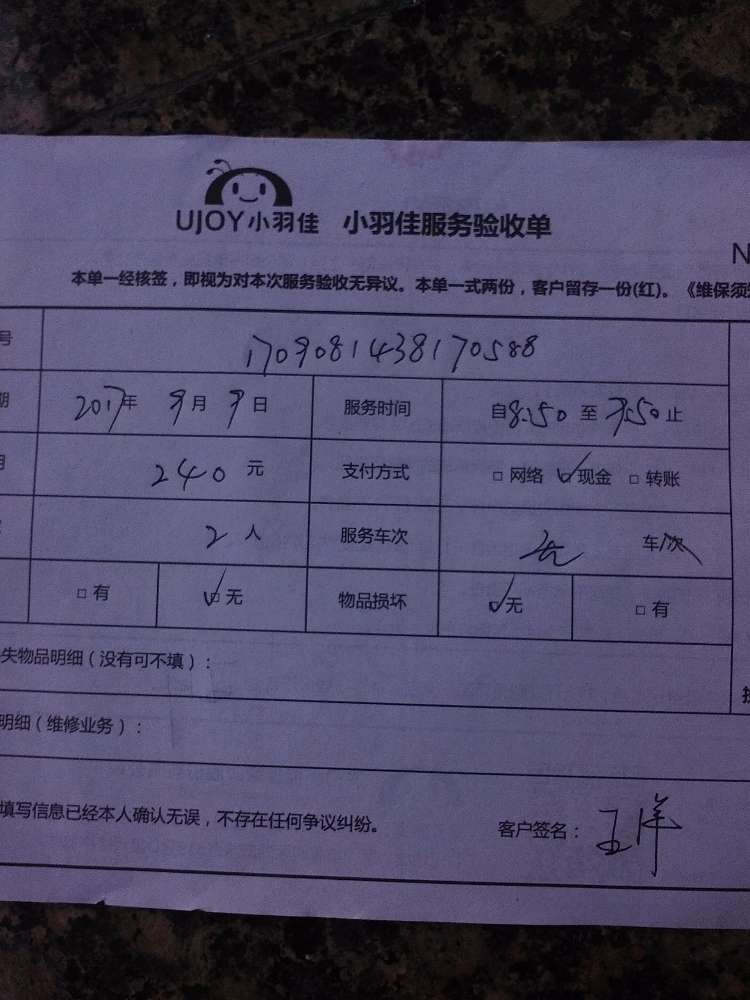 UJOY小羽佳 小羽佳服务验收单
N
本单一经核签，即视为对本次服务验收无异议。本单一式两份，客户留存一份(红)。《维保须知
号 1709081438170588
期 2017年 9月 9日 服务时间 自8:50 至 9:50 止
240 元 支付方式 □ 网络 ☑ 现金 □ 转账
2 人 服务车次 无 车/次
□ 有 ☑ 无 物品损坏 ☑ 无 □ 有
失物品明细（没有可不填）：
明细（维修业务）：
填写信息已经本人确认无误，不存在任何争议纠纷。 客户签名： 王洋